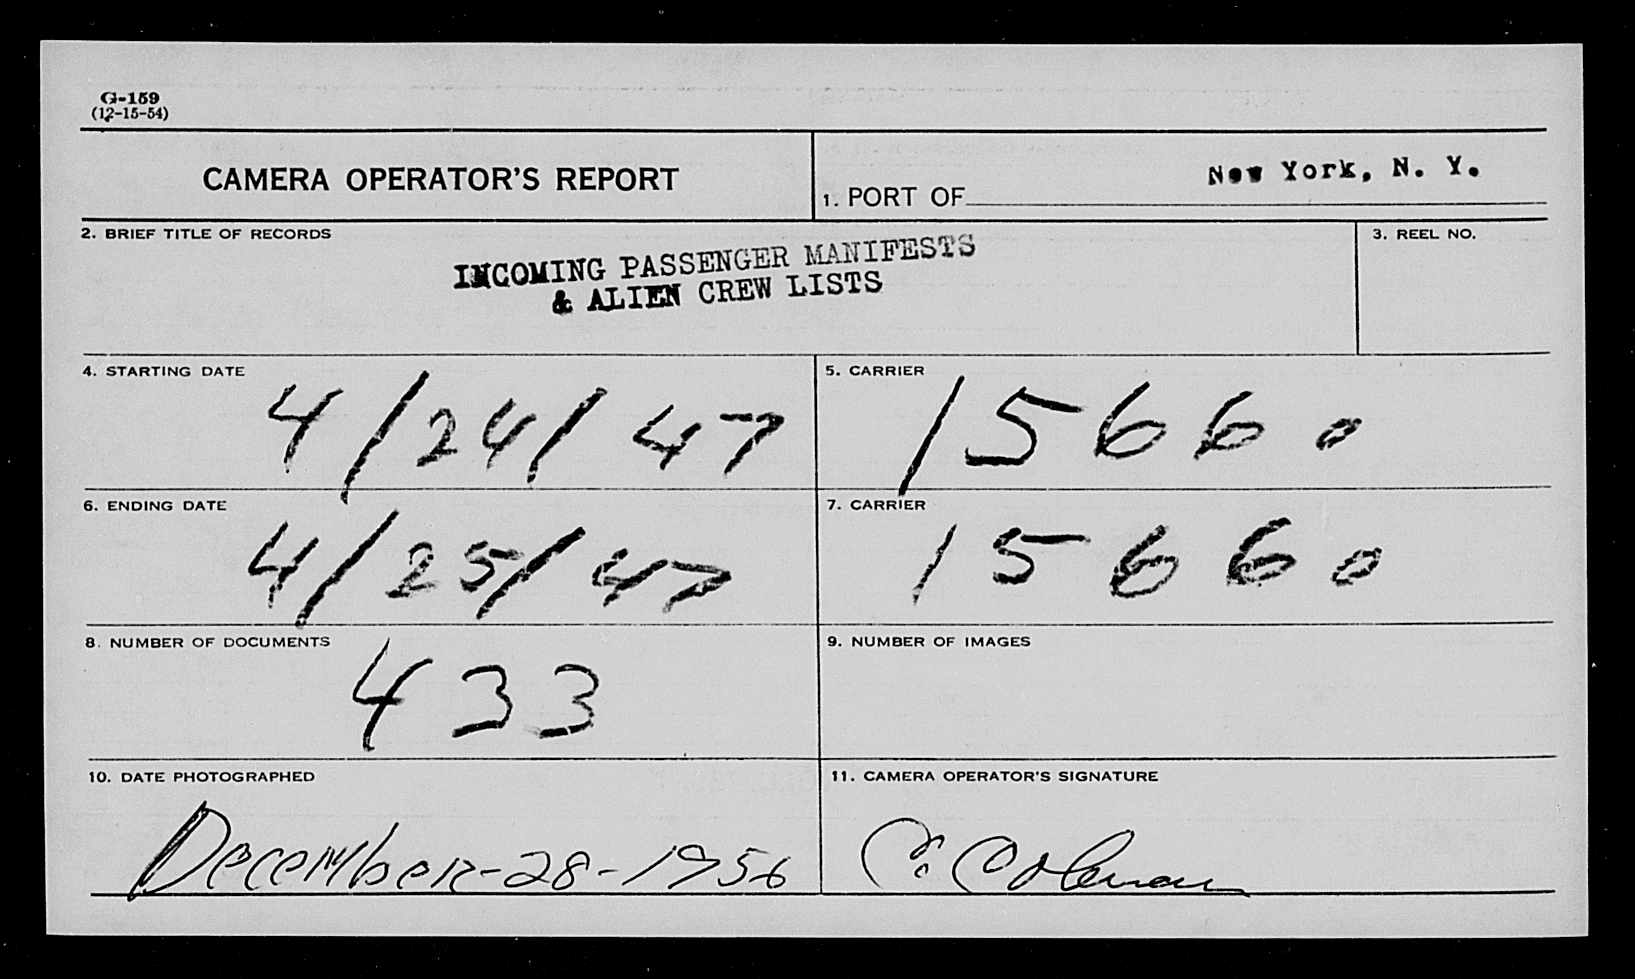 G-159
(12-15-54)
CAMERA OPERATOR'S REPORT
1. PORT OF New York, N. Y.
2. BRIEF TITLE OF RECORDS
INCOMING PASSENGER MANIFESTS
& ALIEN CREW LISTS
3. REEL NO.
4. STARTING DATE
4/24/47
5. CARRIER
15660
6. ENDING DATE
4/25/47
7. CARRIER
15660
8. NUMBER OF DOCUMENTS
433
9. NUMBER OF IMAGES
10. DATE PHOTOGRAPHED
December-28-1956
11. CAMERA OPERATOR'S SIGNATURE
C. Coleman